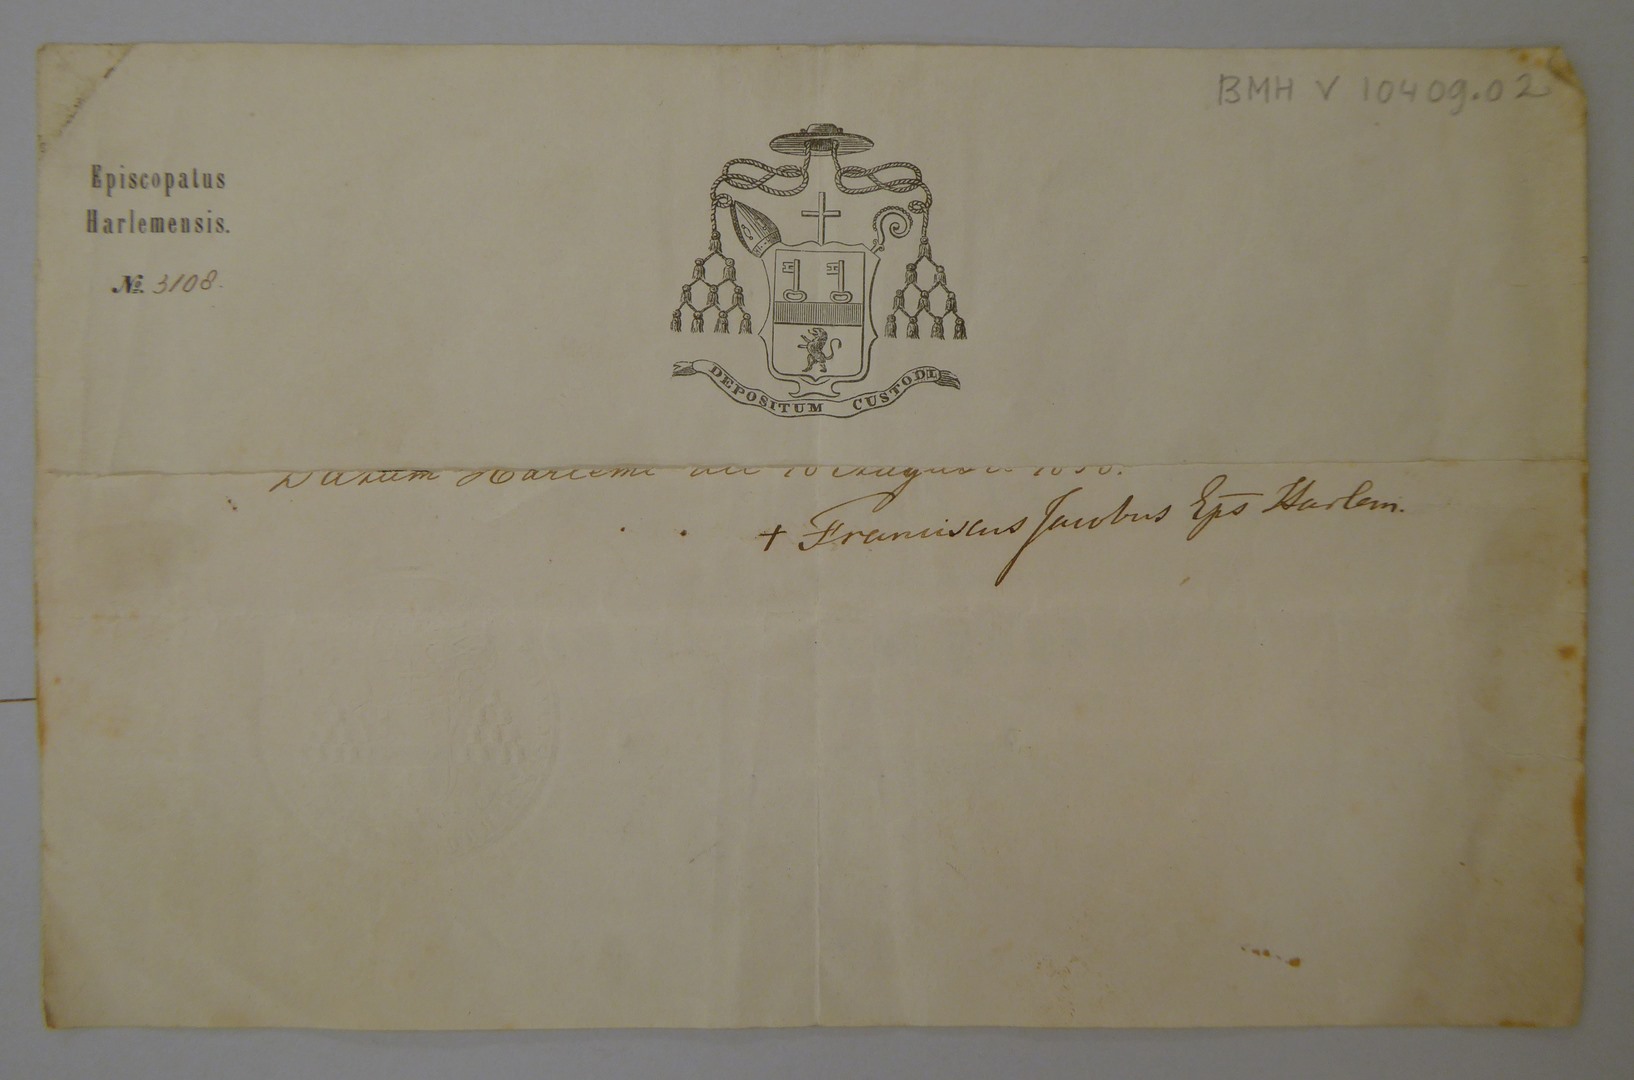 BMH V 10409.02
Episcopatus
Harlemensis.
№ 3108.
DEPOSITUM CUSTODI
Datum Harlemi die 16 Augusti
+ Franciscus Jacobus Eps̄ Harlem.